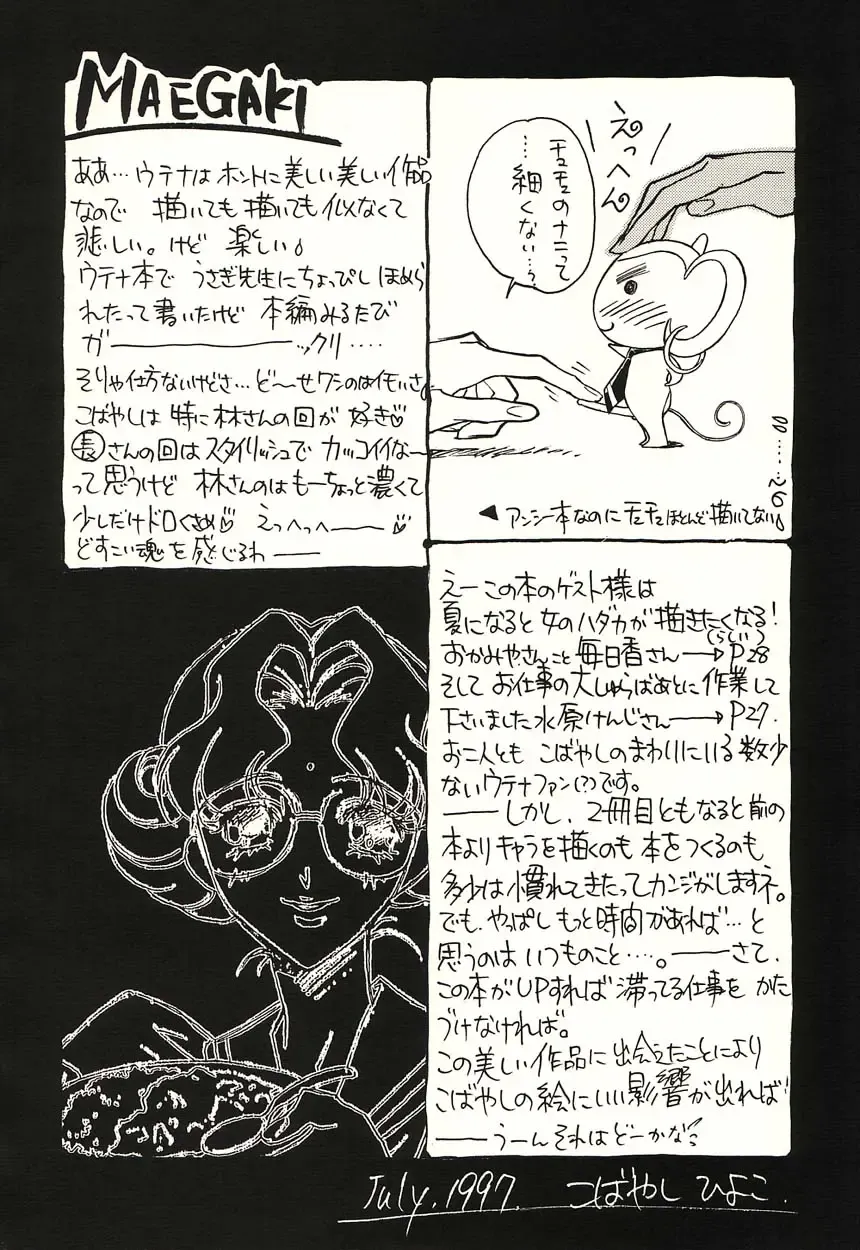 MAEGAKI
ああ…ウテナはホントに美しい美しい作品
なので 描いても描いても似なくて
悲しい。けど 楽しい♪
ウテナ本で うさぎ先生にちょっぴし ほめら
れたって書いたけど 本編みるたび
ガ――――ックリ・・・・
そりゃ仕方ないけどさ…ど〜せワシのはイモいさ。
こばやしは 特に林さんの回が 好き♡
長さんの回はスタイリッシュで カッコイイな〜
って思うけど 林さんのはもーちょっと濃くて
少しだけドロくさめ♡ えっへっへ――♡
どすこい魂を感じるわ――
えっへん
チュチュのナニって
…細くない…?
◀アンシー本なのにチュチュほとんど描いてない。
えー この本のゲスト様は
夏になると 女のハダカが 描きたくなる!
おかみやさんこと 毎日香さん→P28
(らしい)
そして お仕事の大しゅらばあとに 作業して
下さいました水原けんじさん→P27.
お二人とも こばやしのまわりにいる 数少
ないウテナファン(?)です。
――しかし、2冊目ともなると 前の
本よりキャラを描くのも 本をつくるのも
多少は慣れてきたってカンジがしますネ。
でも、やっぱし もっと時間があれば…と
思うのは いつものこと…‥。――さて、
この本がUPすれば 滞ってる仕事を かた
づけなければ。
この美しい作品に 出会えたことにより
こばやしの絵にいい影響が出れば
――うーん それはどーかな?
July.1997. こばやし ひよこ.